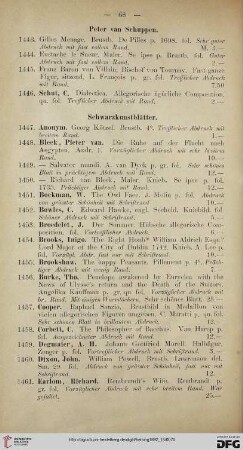 — 68 —
Peter van Schuppen.
1443. Gilles Menage. Brustb. De Piles p. 1698. fol. Sehr guter
Abdruck mit fast vollem Rand. M. 4.—
1444. Eustache le Sueur, Maler. Se ipse p. Brustb. fol.
Abdruck mit fast vollem Rand. 2.—
1445. Franz Baron von Villain, Bischof von Tournay. Fast ganze
Figur, sitzend. L. François p. gr. fol. Trefflicher Abdruck
mit Rand. 7.50
1446. Schut, C. Dialectica. Allegorische figürliche Composition.
qu. fol. Trefflicher Abdruck mit Rand. 2.—
Schwarzkunstblätter.
1447. Anonym. Georg Kötzel. Brustb. 4°. Trefflicher Abdruck mit
breitem Rand. 2.—
1448. Bleek, Pieter van. Die Ruhe auf der Flucht nach
Aegypten. Andr. 1. Vorzüglicher Abdruck mit sehr breitem
Rand. 10.—
1449. — Salvator mundi. A. van Dyck p. gr. fol. Sehr schönes
Blatt in prächtigem Abdruck mit Rand. 12.—
1450. — Richard van Bleek, Maler. Knieb. Se ipse p. fol.
Prächtiger Abdruck mit Rand. 12.—
1451. Bockman, W. The Owl Face. J. Molin p. fol. Abdruck
von grösster Schönheit mit Schriftrand. 10.—
1452. Bowles, C. Edward Hawke, engl. Seeheld. Kniebild. fol.
Schöner Abdruck mit Schriftrand. 3.—
1453. Brochelet, J. Der Sommer. Hübsche allegorische Composition.
fol. Vortrefflicher Abdruck. 3.—
1454. Brooks,
Lord Mayor of the City of Dublin
1455. Brookshaw.
Abdruck mit wenig Rand. 7.—
1456. Burke, Tho. Penelope awakened by Euryclea with the
News of Ulysse's return and the Death of the Suitors.
Angelika Kauffman p. gr. qu. fol. Vorzüglicher Abdruck
25.—
1457. Cooper. Raphael Sanzio, Brustbild in Medaillon von
vielen allegorischen Figuren umgeben. C. Maratti p. qu. fol.
Sehr schönes Blatt in brillantem Abdruck. 12.—
1458. Corbett, C. The Philosopher of Baython. Van Harp p.
fol. Ausgezeichneter Abdruck mit Rand. 12.—
1459. Degmair, A. M. Johann Gottfried Morell. Halbfigur.
fol. Vortrefflicher Abdruck mit Schriftrand. 3.—
1460. Dixon, John. William Powell. Brustb. Lawranson del.
fol. Abdruck von grösster Schönheit, fast nur mit
Schriftrand. 12.—
1461. Earlom, Richard. Rembrandt's Wife. Rembrandt p.
gr. fol. Vorzüglicher Abdruck mit sehr breitem Rand.
25.—